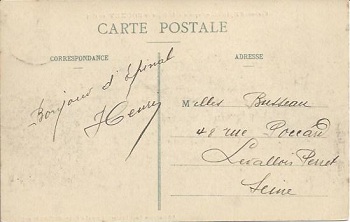 CARTE POSTALE
CORRESPONDANCE
ADRESSE
Bonjour d'Epinal
Henry
Melles Busseau
48 rue Poccard
Levallois Perret
Seine